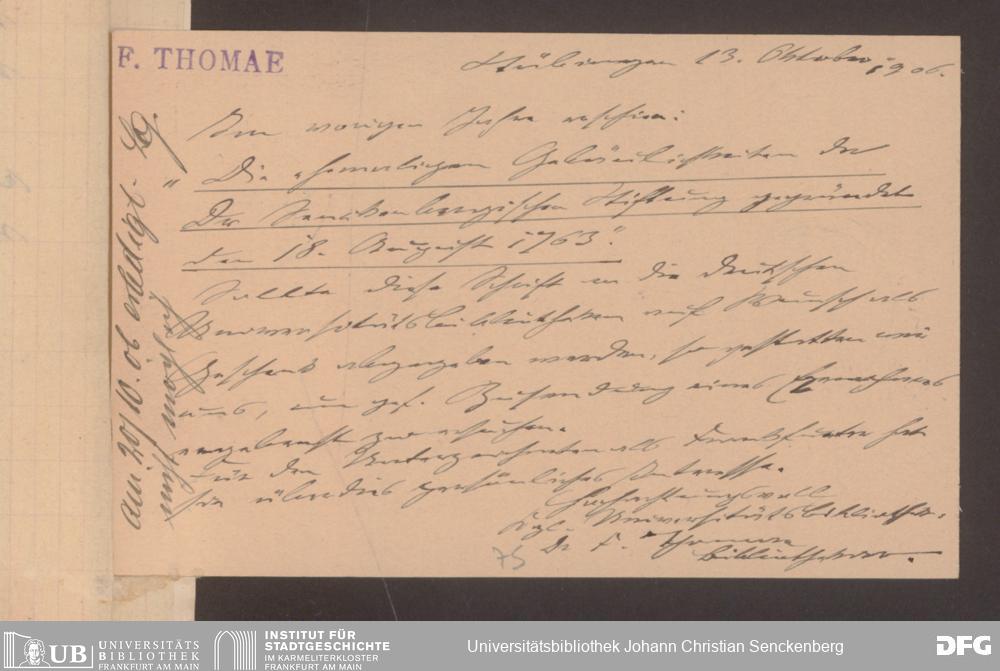 F. THOMAE
Tübingen 13. Oktober 1906.
Im vorigen Jahre erschien:
"Die ehemaligen Gebäulichkeiten der
Dr Senckenbergischen Stiftung gegründet
den 18. August 1763".
Sollte diese Schrift an die deutschen
Universitätsbibliotheken auf Wunsch als
Geschenk abgegeben werden, so gestatten wir
uns, um gef. Zusendung eines Exemplares
ergebenst zu ersuchen.
Für den Unterzeichneten als Frankfurter hat
sie überdies persönliches Interesse.
Hochachtungsvoll
Kgl. Universitätsbibliothek.
Dr F. Thomae
Bibliothekar.
am 20/10. 06 erledigt.
nicht möglich
75
UB UNIVERSITÄTS
BIBLIOTHEK
FRANKFURT AM MAIN
INSTITUT FÜR
STADTGESCHICHTE
IM KARMELITERKLOSTER
FRANKFURT AM MAIN
Universitätsbibliothek Johann Christian Senckenberg
DFG